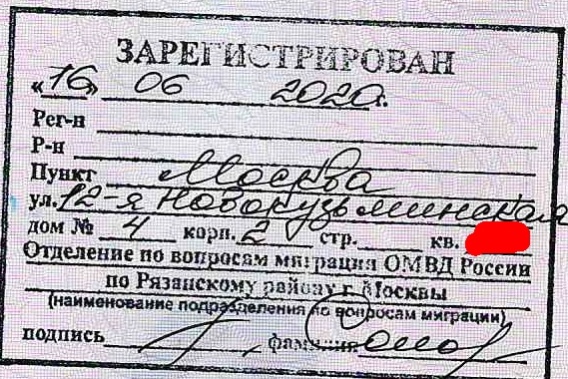 ЗАРЕГИСТРИРОВАН
«16» 06 2020г.
Рег-н
Р-н
Пункт Москва
ул. 12-я Новокузьминская
дом № 4 корп. 2 стр. кв.
Отделение по вопросам миграции ОМВД России
по Рязанскому району г. Москвы
(наименование подразделения по вопросам миграции)
подпись фамилия